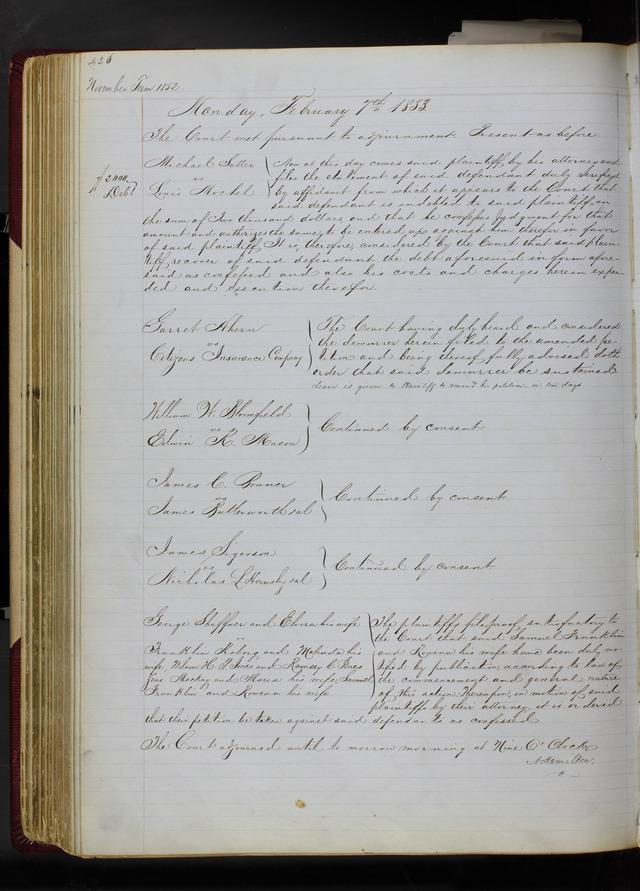 426
November Term 1852
Monday, February 7th 1853
The Court met pursuant to adjournment. Present as before
Michael Sutter
vs
Louis Hockel
$2000
Debt
Now at this day comes said plaintiff by his attorney and
files the statement of said defendant duly verifyed
by affidavit from which it apears to the Court that
said defendant is indebted to said plaintiff in
the sum of Two thousand dollars and that he confesses judgment for that
amount and authorizes the same to be entered up against him therefor in favor
of said plaintiff, It is, therefore, considered by the Court that said plain
tiff recover of said defendant the debt aforesaid in form afore-
said as confessed and also his costs and charges herein expen
ded and execution therefor.
Garret Ahern
vs
Citizens Insurance Company
The Court having duly heard and considered
the demurrer herein filed to the amended pe-
tition and being thereof fully advised doth
order that said demurrer be sustained
leave is given to Plaintiff to amend his petition in ten days
William W. Bloomfield
vs
Edwin R. Mason
Continued by consent.
James C. Bonner
vs
James Butterworth et al
Continued by consent.
James Sigerson
vs
Nicholas L Hornsby et al
Continued by consent.
George Shaffner and his wife
vs
Franklin and Malinda his
wife, H. and Ramsey C.
Mackay and Maria his wife, Samuel
Franklin and Rowena his wife
The plaintiffs file proof satisfactory to
the Court that said Samuel Franklin
and Rowena his wife have been duly no-
tified by publication according to law of
the commencement and general nature
of this action. Thereupon, on motion of said
plaintiffs by their attorney it is ordered
that their petition be taken against said defendants as confessed
The Court adjourned until to morrow morning at Nine O'Clock
A Hamilton.